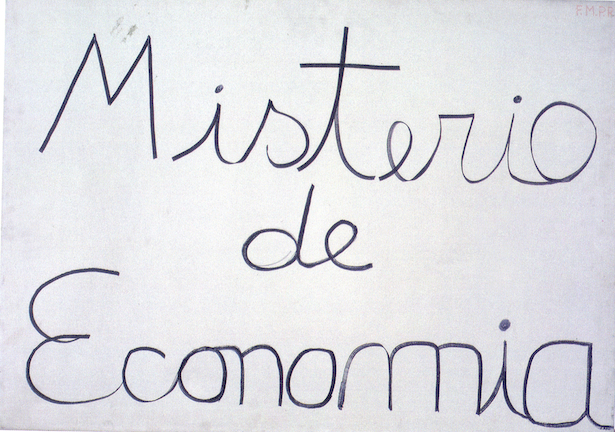 Misterio
de
Economia